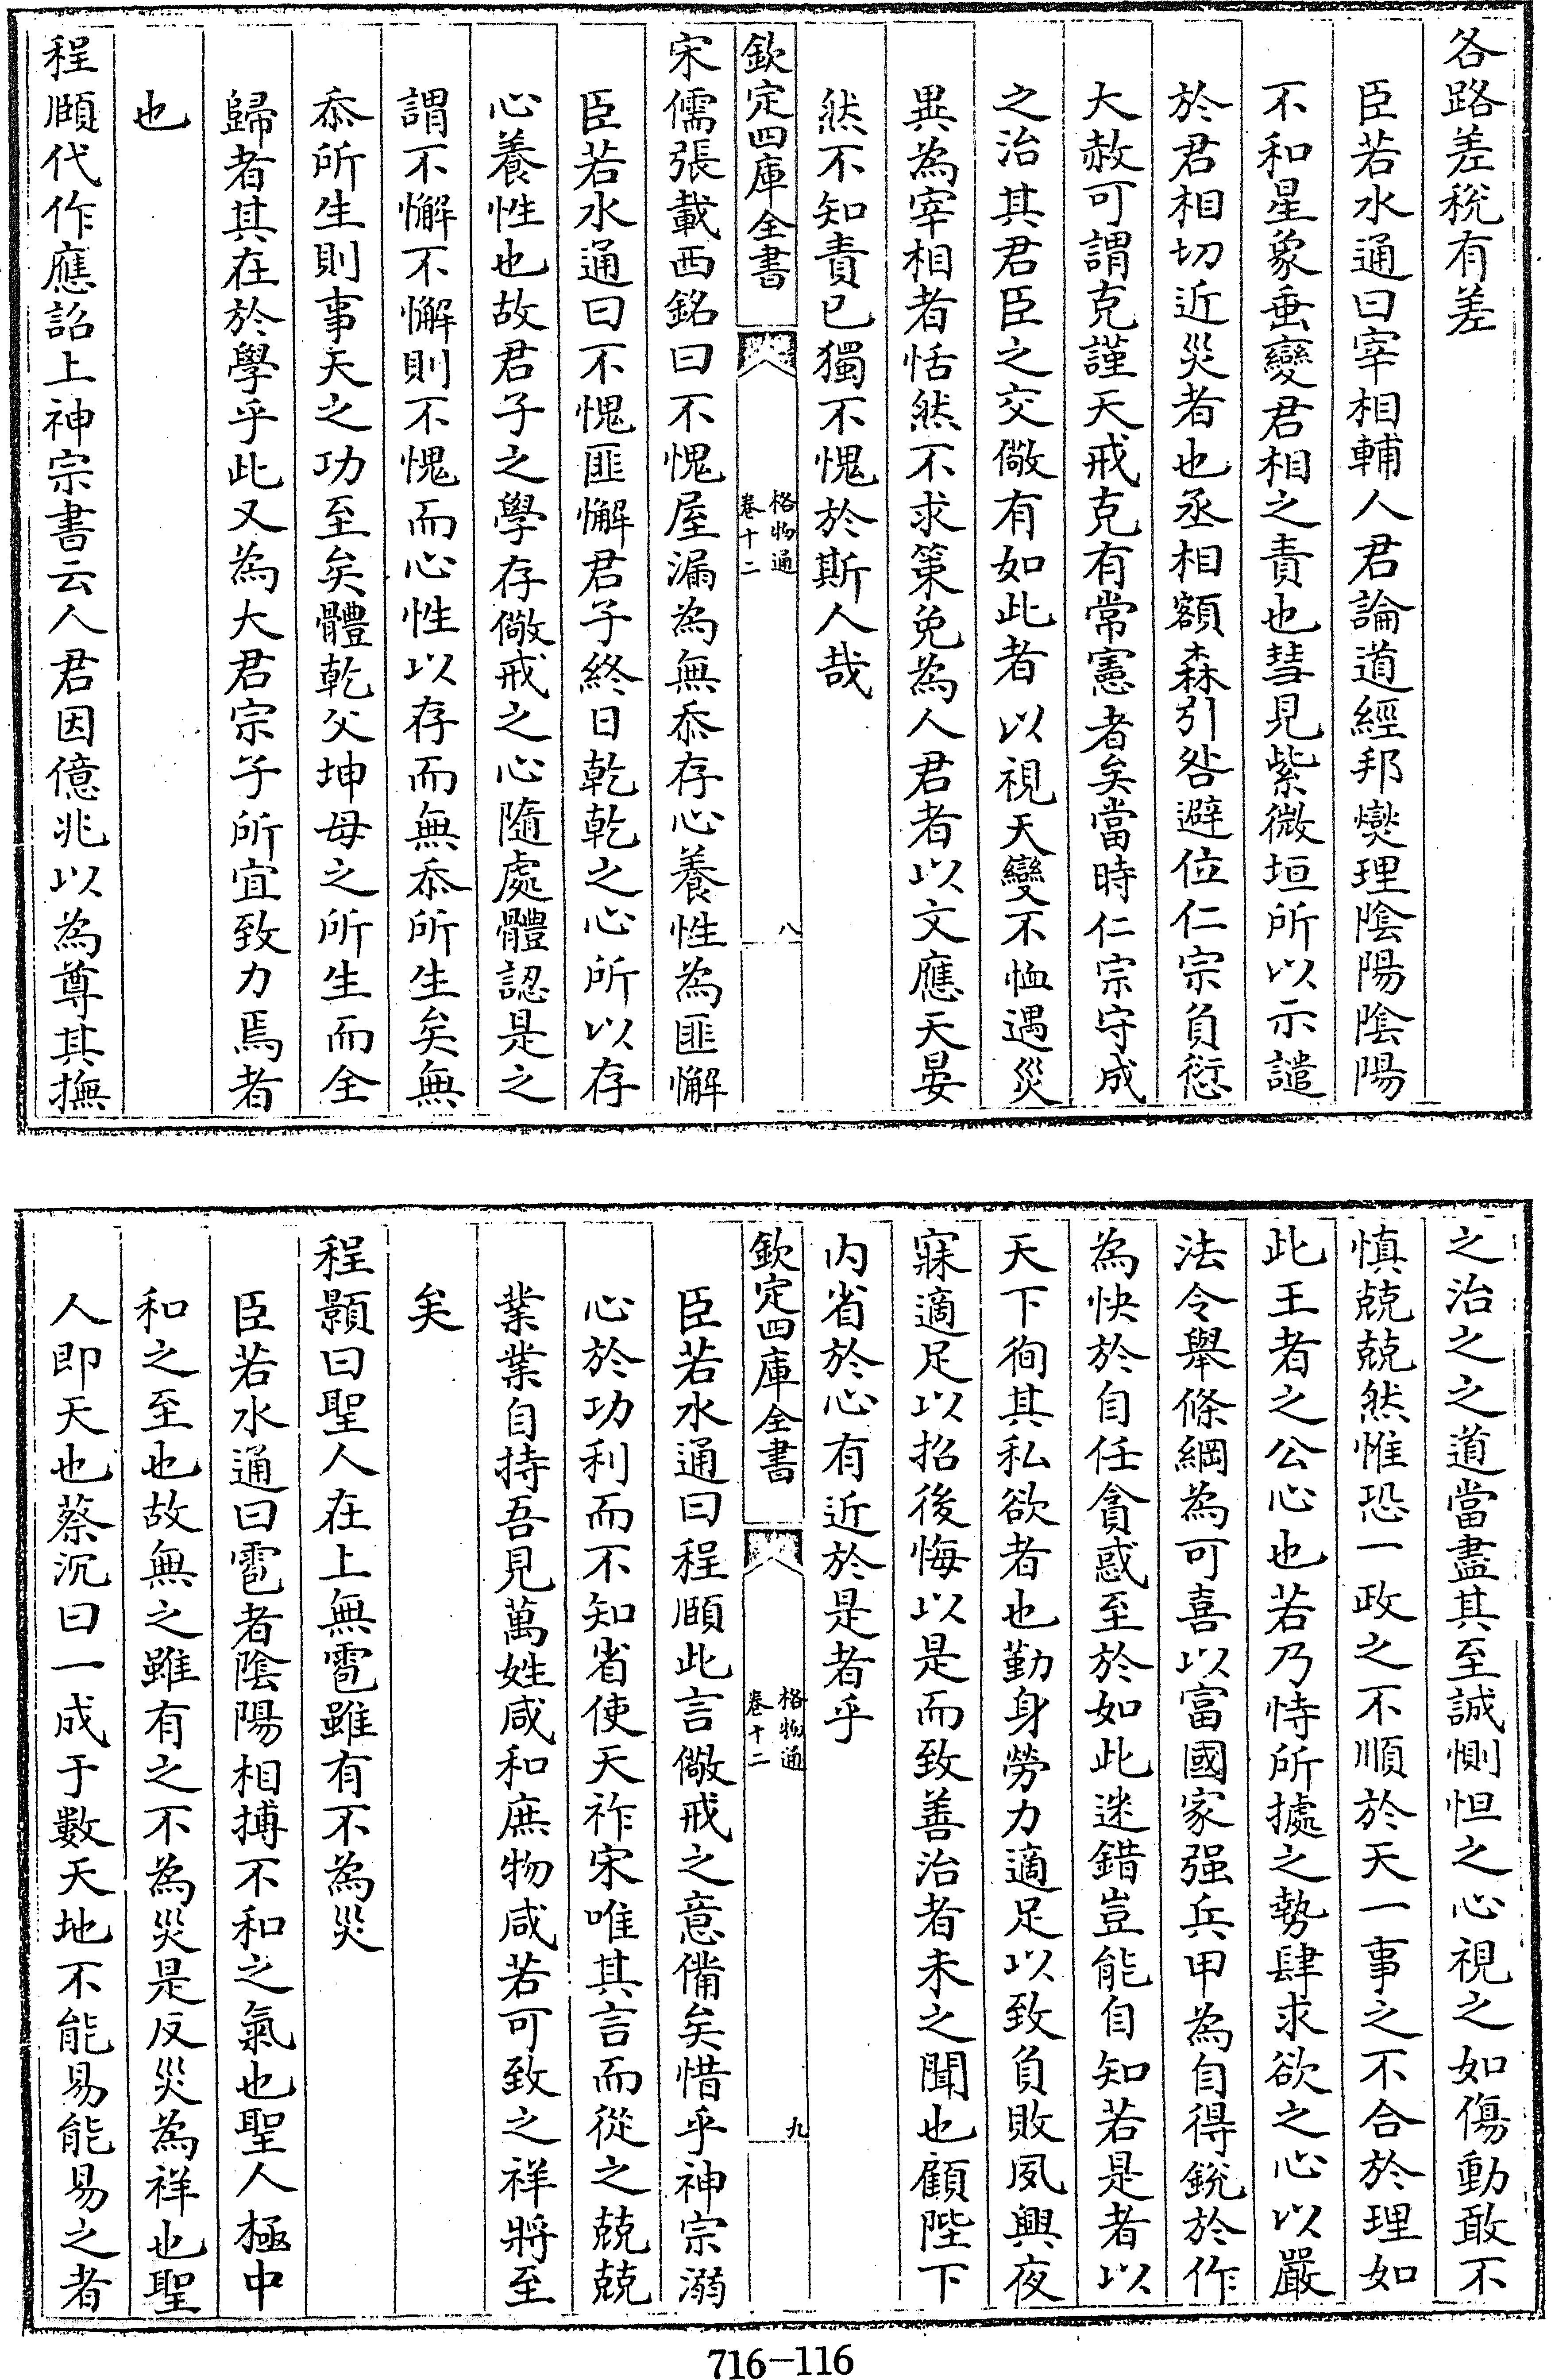 各路差稅有差
臣若水通曰宰相輔人君論道經邦爕理隂陽隂陽
不和星象垂變君相之責也彗見紫微垣所以示譴
於君相切近災者也丞相額森引咎避位仁宗負愆
大赦可謂克謹天戒克有常憲者矣當時仁宗守成
之治其君臣之交儆有如此者以視天變不恤遇災
異為宰相者恬然不求策免為人君者以文應天晏
然不知責已獨不愧於斯人哉
欽定四庫全書
格物通
卷十二
八
宋儒張載西銘曰不愧屋漏為無忝存心養性為匪懈
臣若水通曰不愧匪懈君子終日乾乾之心所以存
心養性也故君子之學存儆戒之心隨處體認是之
謂不懈不懈則不愧而心性以存而無忝所生矣無
忝所生則事天之功至矣體乾父坤母之所生而全
歸者其在於學乎此又為大君宗子所宜致力焉者
也
程頤代作應詔上神宗書云人君因億兆以為尊其撫
之治之之道當盡其至誠惻怛之心視之如傷動敢不
慎兢兢然惟恐一政之不順於天一事之不合於理如
此王者之公心也若乃恃所據之勢肆求欲之心以嚴
法令舉條綱為可喜以富國家强兵甲為自得銳於作
為快於自任貪惑至於如此迷錯豈能自知若是者以
天下徇其私欲者也勤身勞力適足以致負敗夙興夜
寐適足以招後悔以是而致善治者未之聞也顧陛下
内省於心有近於是者乎
欽定四庫全書
格物通
卷十二
九
臣若水通曰程頤此言儆戒之意備矣惜乎神宗溺
心於功利而不知省使天祚宋唯其言而從之兢兢
業業自持吾見萬姓咸和庶物咸若可致之祥將至
矣
程顥曰聖人在上無雹雖有不為災
臣若水通曰雹者隂陽相搏不和之氣也聖人極中
和之至也故無之雖有之不為災是反災為祥也聖
人即天也蔡沉曰一成于數天地不能易能易之者
716-116